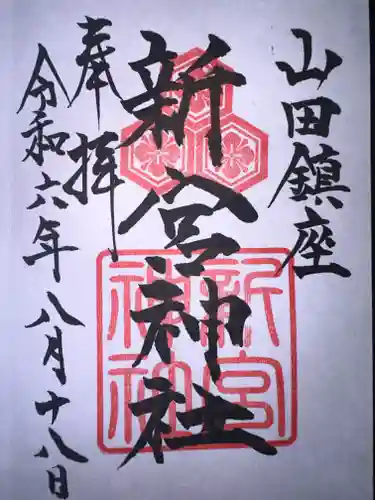 山田鎮座
新宮神社
新宮
神社
奉拝
令和六年八月十八日